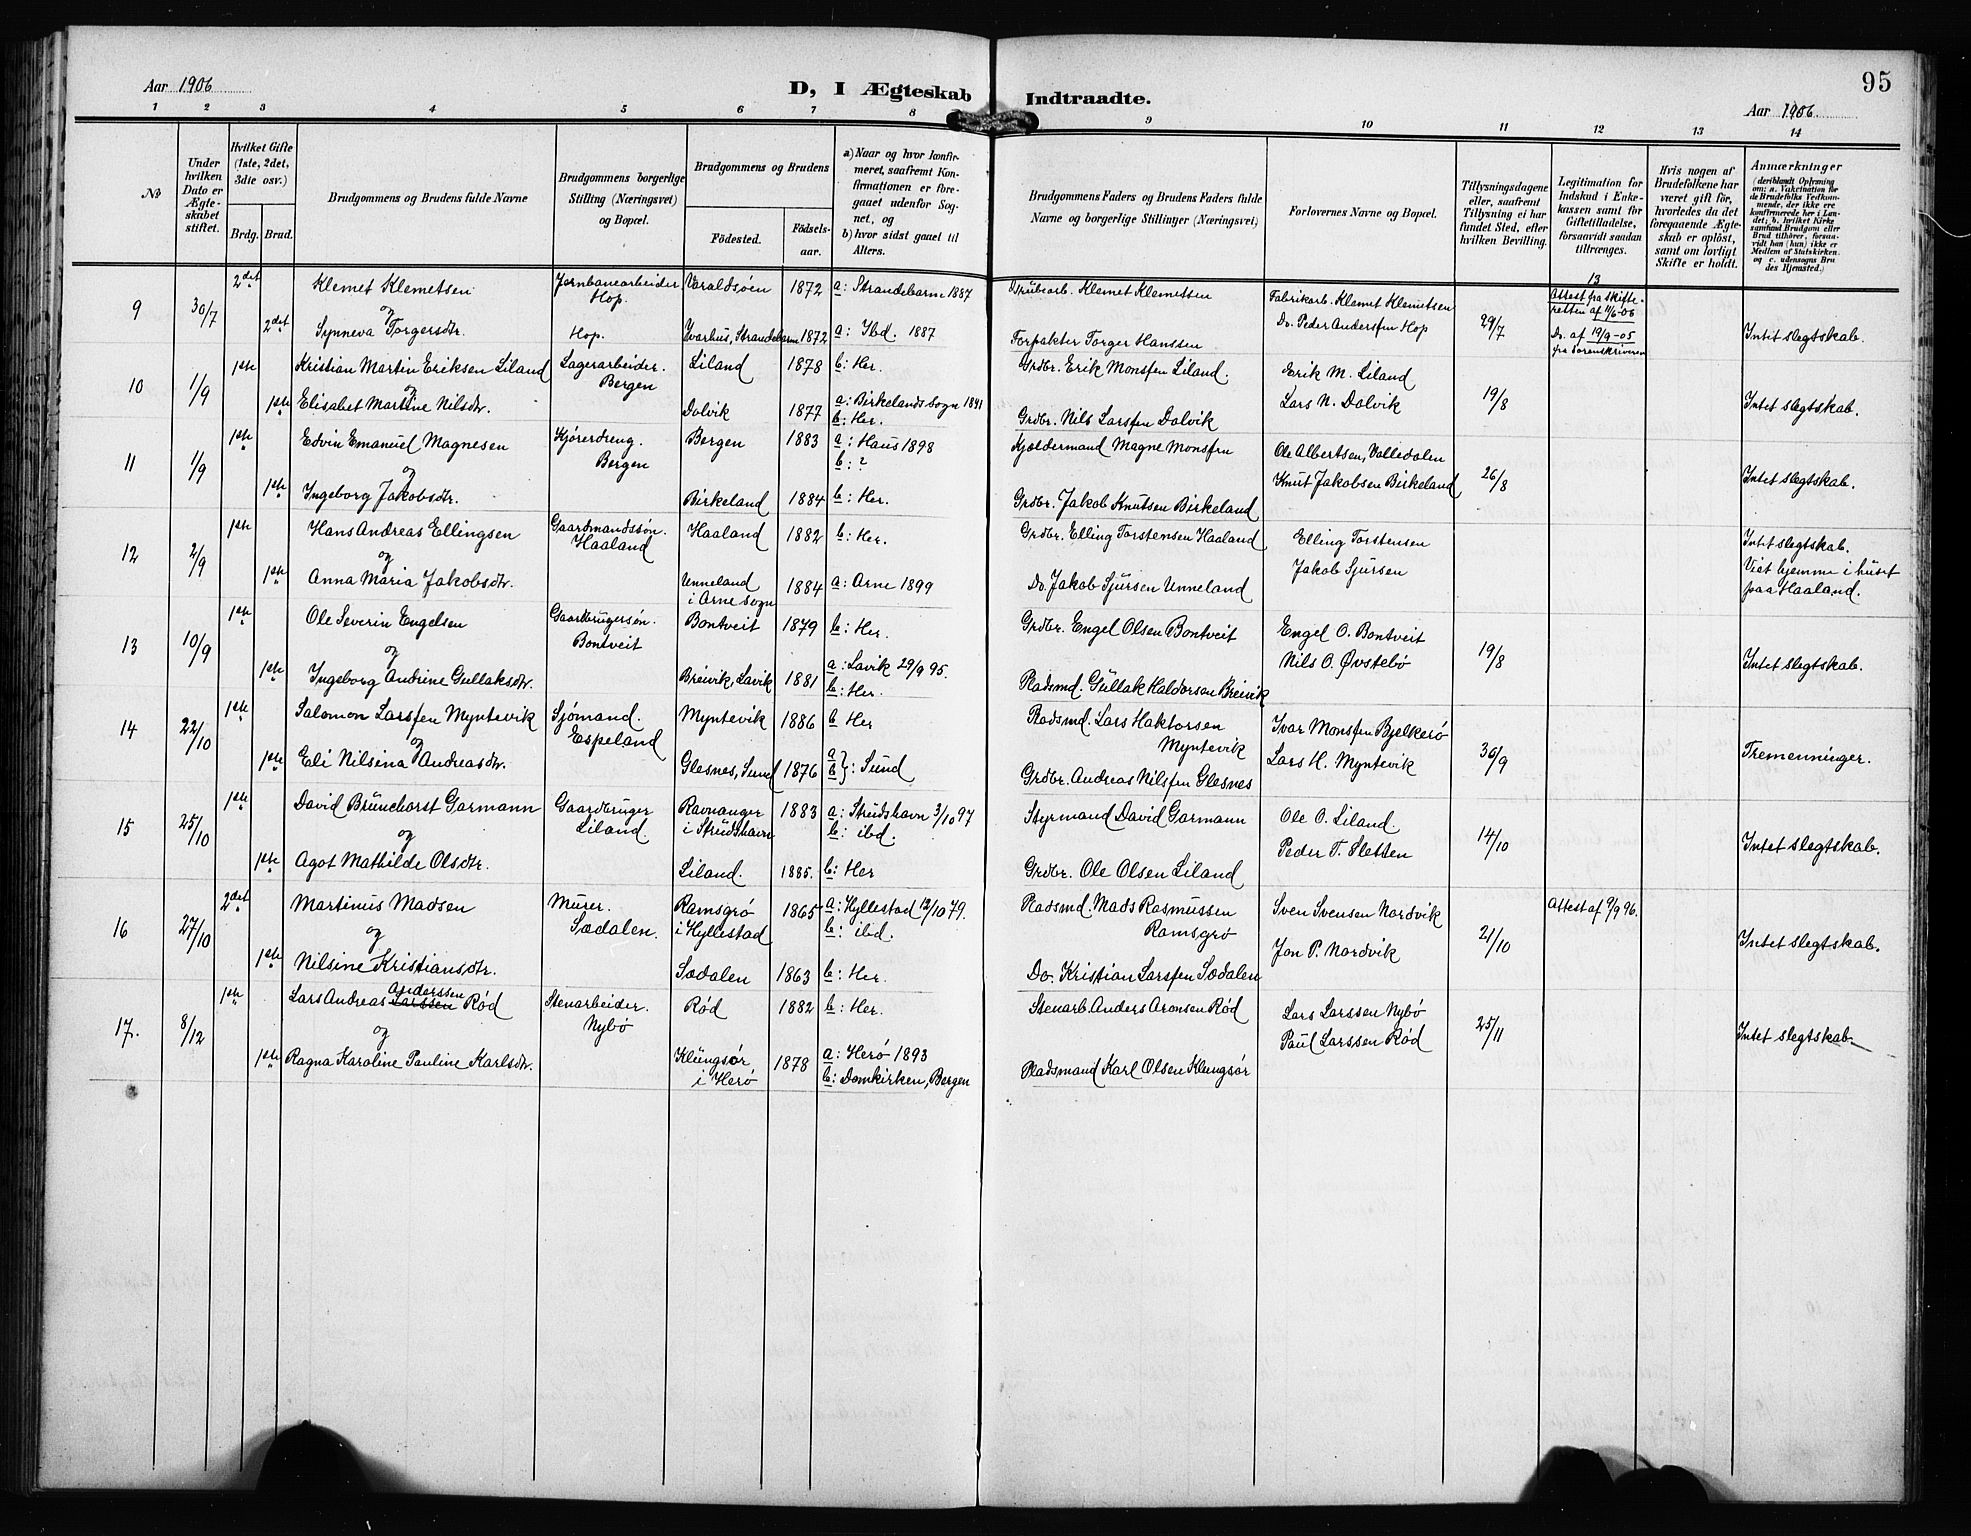 95
Aar 1906
D, I Ægteskab Indtraadte.
Aar 1906
1 2 3 4 5 6 7 8 9 10 11 12 13 14
No
Under hvilken Dato er Ægteskabet stiftet.
Hvilket Gifte (1ste, 2det, 3die osv.)
Brdg. Brud.
Brudgommens og Brudens fulde Navne
Brudgommens borgerlige Stilling (Næringsvei) og Bopæl.
Brudgommens og Brudens
Födested.
Födselsaar.
a) Naar og hvor konfirmeret, saafremt Konfirmationen er foregaaet udenfor Sognet, og
b) hvor sidst gaaet til Alters.
Brudgommens Faders og Brudens Faders fulde Navne og borgerlige Stillinger (Næringsvei)
Forlovernes Navne og Bopæl.
Tillysningsdagene eller, saafremt Tillysning ei har fundet Sted, efter hvilken Bevilling.
Legitimation for Indskud i Enkekassen samt for Giftetilladelse, forsaavidt saadan tiltrænges.
Hvis nogen af Brudefolkene har været gift för, hvorledes da det foregaaende Ægteskab er oplöst, samt om lovligt Skifte er holdt.
Anmærkninger
(deriblandt Oplysning om: a. Vakcination for de Brudefolks Vedkommende, der ikke ere konfirmerede her i Landet; b. hvilket Kirkesamfund Brudgom eller Brud tilhører, forsaavidt han (hun) ikke er Medlem af Statskirken, og c. udensogns Brudes Hjemsted.)
9 30/7 2det Klemet Klemetsen Jernbanearbeider Hop. Varaldsøen 1872 a: Strandebarm 1887 Grubearb. Klemet Klemetsen Fabrikarb. Klemet Klemetsen 29/7 13 Attest fra skifteretten af 11/6-06
og
2det Synneva Torgersdtr. Hop. Ivarhus, Strandebarm 1872 a: Ibd. 1887 Forpakter Torger Hanssen Do. Peder Andersen Hop Do. af 19/9-05 fra sorenskriveren Intet slegtskab.
10 1/9 1ste Kristian Martin Eriksen Liland Lagerarbeider. Bergen Liland 1878 b: Her. Grdbr. Erik Monsen Liland. Erik M. Liland 19/8
og
1ste Elisabet Martine Nilsdtr. Dolvik 1877 a: Birkelands sogn 1891 b: Her. Grdbr. Nils Larsen Dolvik Lars N. Dolvik Intet slegtskab.
11 1/9 1ste Edvin Emanuel Magnesen Kjøredreng. Bergen Bergen 1883 a: Haus 1898 b: ? Kjældermand Magne Monsen Ole Albertsen, Valledalen 26/8
og
1ste Ingeborg Jakobsdtr. Birkeland 1884 b: Her. Grdbr. Jakob Knutsen Birkeland Knut Jakobsen Birkeland Intet slegtskab.
12 2/9 1ste Hans Andreas Ellingsen Gaardmandssøn. Haaland Haaland 1882 b: Her. Grdbr. Elling Torstensen Haaland Elling Torstensen
og
1ste Anna Maria Jakobsdtr. Unneland i Arne sogn 1884 a: Arne 1899 Do. Jakob Sjursen Unneland Jakob Sjursen Intet slegtskab. Viet hjemme i huset paa Haaland.
13 10/9 1ste Ole Severin Engelsen Gaardbrugersøn. Bontveit Bontveit 1879 b: Her. Grdbr. Engel Olsen Bontveit Engel O. Bontveit 19/8
og
1ste Ingeborg Andrine Gullaksdtr. Breivik, Lavik 1881 a: Lavik 29/9 95. b: Her. Pladsmd. Gullak Haldorsen Breivik Nils O. Øvstebø Intet slegtskab.
14 22/10 1ste Salomon Larsen Myntevik Sjømand. Espeland Myntevik 1886 b Her Pladsmd. Lars Haktorsen Myntevik Ivar Monsen Bjelkerø 30/9
og
1ste Eli Nilsina Andreasdtr. Glesnes, Sund 1876 a b}: Sund Grdbr. Andreas Nilsen Glesnes Lars H. Myntevik Tremenninger.
15 25/10 1ste David Brunchorst Garmann Gaardbruger Liland. Ravnanger i Strudshavn 1883 a: Strudshavn 3/10 97 b: ibd. Styrmand David Garmann Ole O. Liland. 14/10
og
1ste Agot Mathilde Olsdtr. Liland. 1885. b: Her Grdbr. Ole Olsen Liland Peder T. Sletten Intet slegtskab.
16 27/10 2det Martinus Madsen Murer. Sædalen. Ramsgrø i Hyllestad 1865 a: Hyllestad 12/10 79. b: ibd. Pladsmd. Mads Rasmussen Ramsgrø Sven Svensen Nordvik 21/10 Attest af 9/9 96.
og
1ste Nilsine Kristiansdtr. Sædalen 1863 b: Her. Do. Kristian Larsen Sædalen Jon P. Nordvik Intet slegtskab.
17. 8/12 1ste Lars Andreas Larssen Anderssen Rød Stenarbeider. Nybø Rød 1882 b: Her. Stenarb. Anders Aronsen Rød Lars Larssen Nybø 25/11
og
1ste Ragna Karoline Pauline Karlsdtr. Klungsør i Herø 1878 a: Herø 1893 b: Domkirken, Bergen Pladsmand Karl Olsen Klungsør Paul Larssen Rød Intet slegtskab.